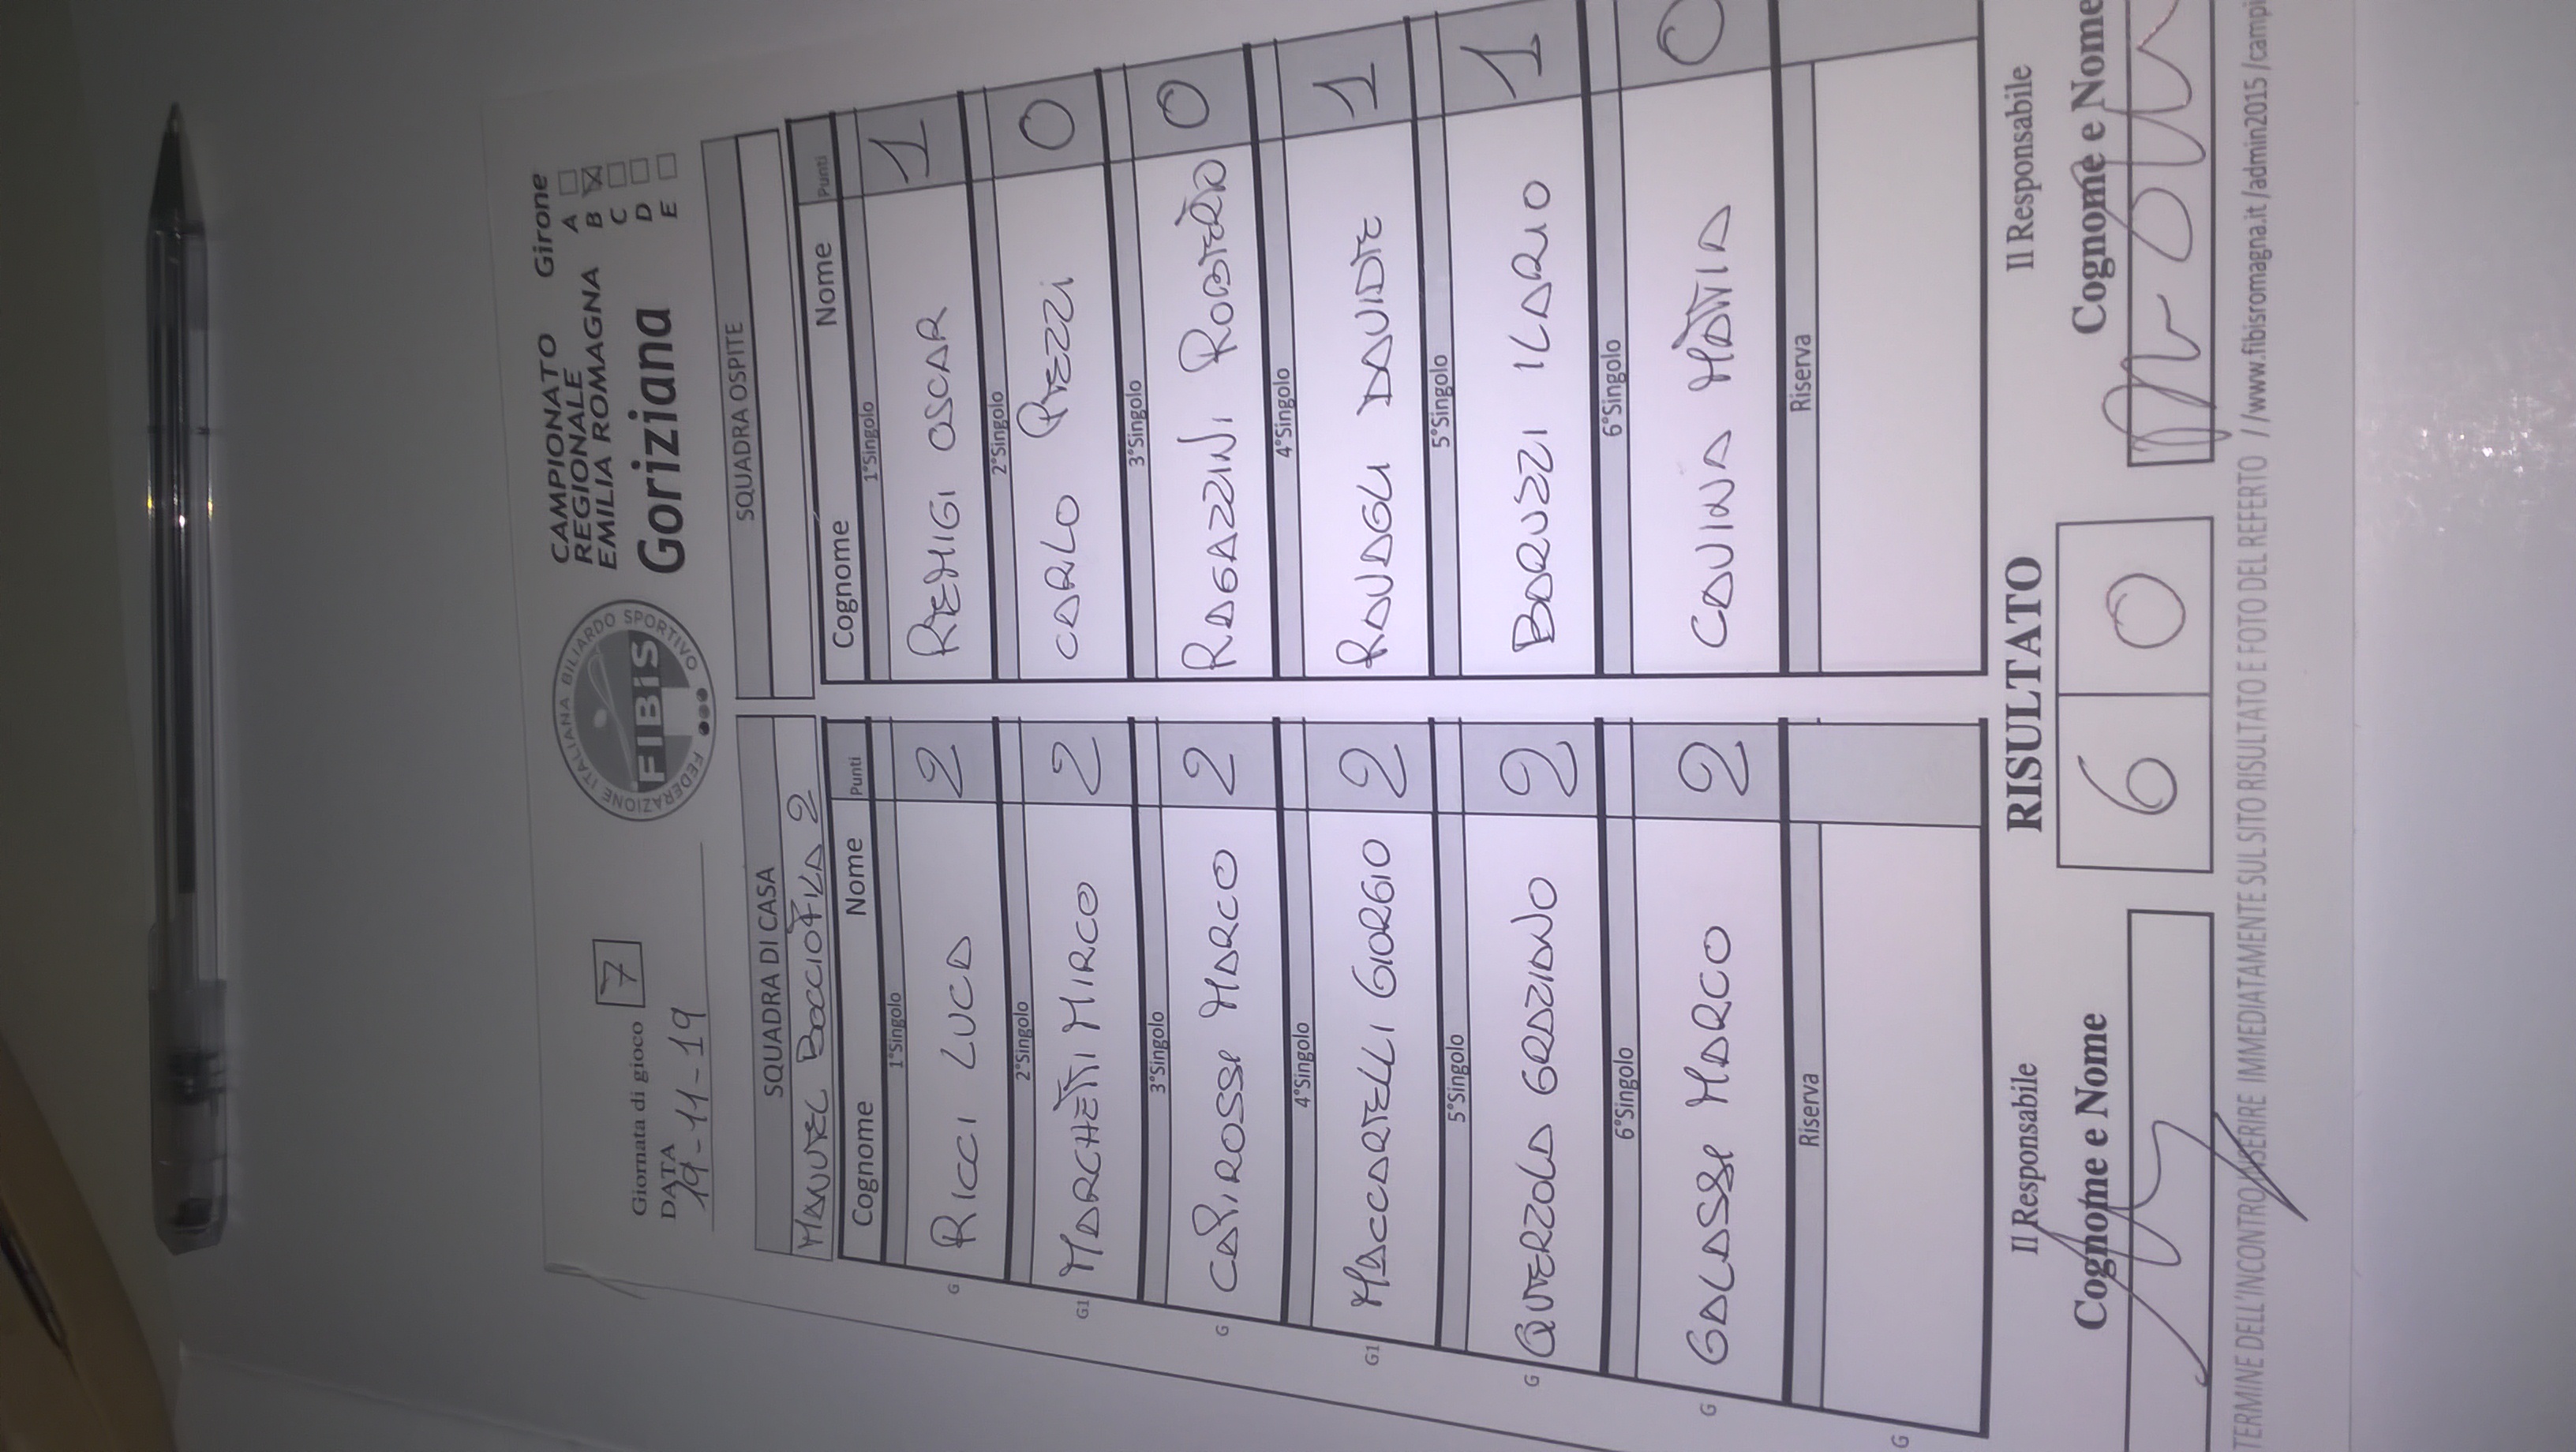 Giornata di gioco 7
DATA
19-11-19
FEDERAZIONE ITALIANA BILIARDO SPORTIVO
FIBiS
CAMPIONATO
REGIONALE
EMILIA ROMAGNA
Goriziana
Girone
A
B
C
D
E
SQUADRA DI CASA
MANUEL BOCCIOFILA 2
SQUADRA OSPITE
Cognome Nome Punti
Cognome Nome Punti
1°Singolo
1°Singolo
G RICCI LUCA 2
REMIGI OSCAR 1
2°Singolo
2°Singolo
G1 MARCHETTI MIRCO 2
CARLO PEZZI 0
3°Singolo
3°Singolo
G CAPIROSSI MARCO 2
RAGAZZINI ROBERTO 0
4°Singolo
4°Singolo
G1 MACCARELLI GIORGIO 2
RAVAGLI DAVIDE 1
5°Singolo
5°Singolo
G QUERZOLA GRAZIANO 2
BARUZZI ILARIO 1
6°Singolo
6°Singolo
G GALASSI MARCO 2
CAVINA MATTIA 0
Riserva
Riserva
G
Il Responsabile
RISULTATO
Il Responsabile
Cognome e Nome
6 0
Cognome e Nome
TERMINE DELL'INCONTRO INSERIRE IMMEDIATAMENTE SUL SITO RISULTATO E FOTO DEL REFERTO //www.fibisromagna.it/admin2015/campi